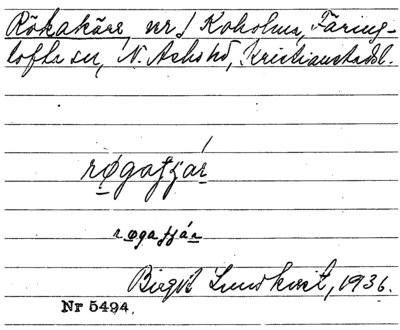 Rökakärr, nr 1 Koholma, Färing-
tofta sn, N. Åsbo hd, Kristianstads l.
røgaʃʃár
røgaʃʃár
Birgit Lundkvist, 1936.
Nr 5494.